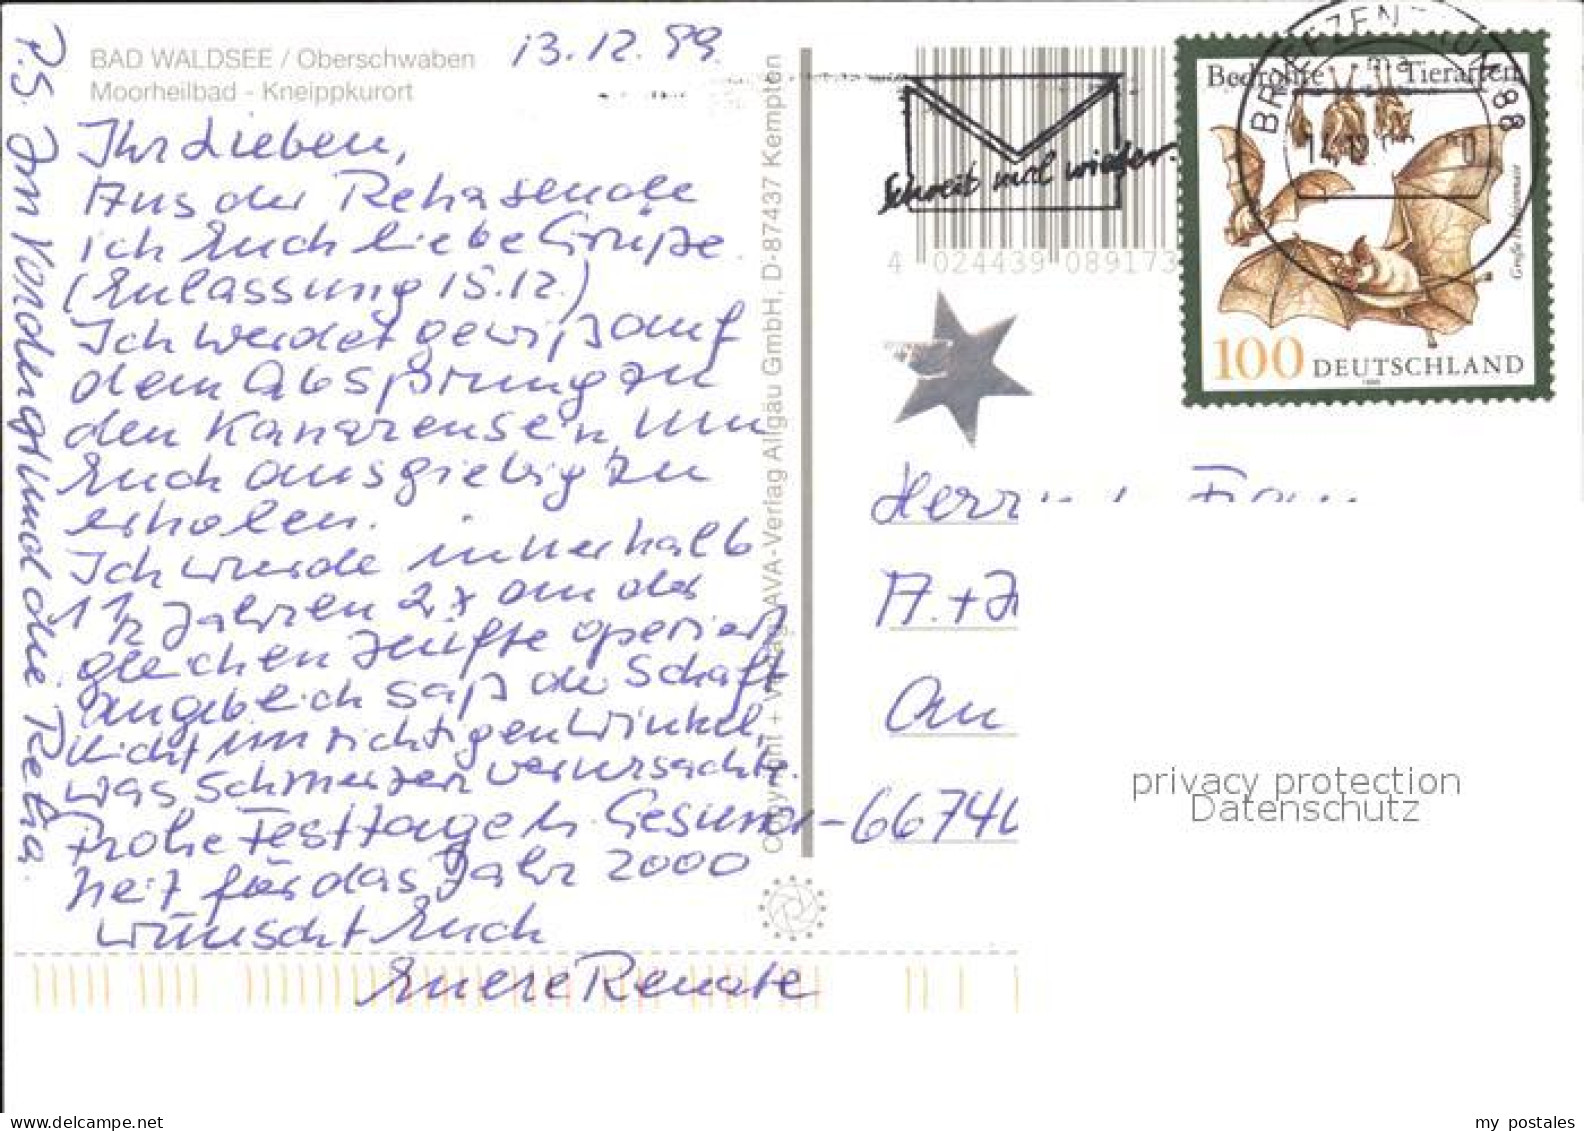 BAD WALDSEE / Oberschwaben
Moorheilbad - Kneippkurort
13.12.99
Ihr Lieben,
Aus der Reha sende
ich Euch liebe Grüße.
(Enlassung 15.12.)
Ich werdet gewiß auf
dem Absprung zu
den Kanaren sein, um
Euch ausgiebig zu
erholen.
Ich wurde innerhalb
1 1/2 Jahren 2x an der
gleichen Hüfte operiert
angeblich saß der Schaft
nicht im richtigen Winkel,
was Schmerzen verursachte.
Frohe Festtage u. Gesund-
heit für das Jahr 2000
wünscht Euch
Euere Renate
P.S. Im Vordergrund die Reha.
Copyright + Verlag AVA-Verlag Allgäu GmbH, D-87437 Kempten
Schreib mal wieder.
4 024439 089173
BRIEFZEN 88
Bedrohte Tierarten
Große Hufeisennase
100 DEUTSCHLAND
1999
Herrn u. Frau
A. + H
An
66740
privacy protection
Datenschutz
my postales
www.delcampe.net